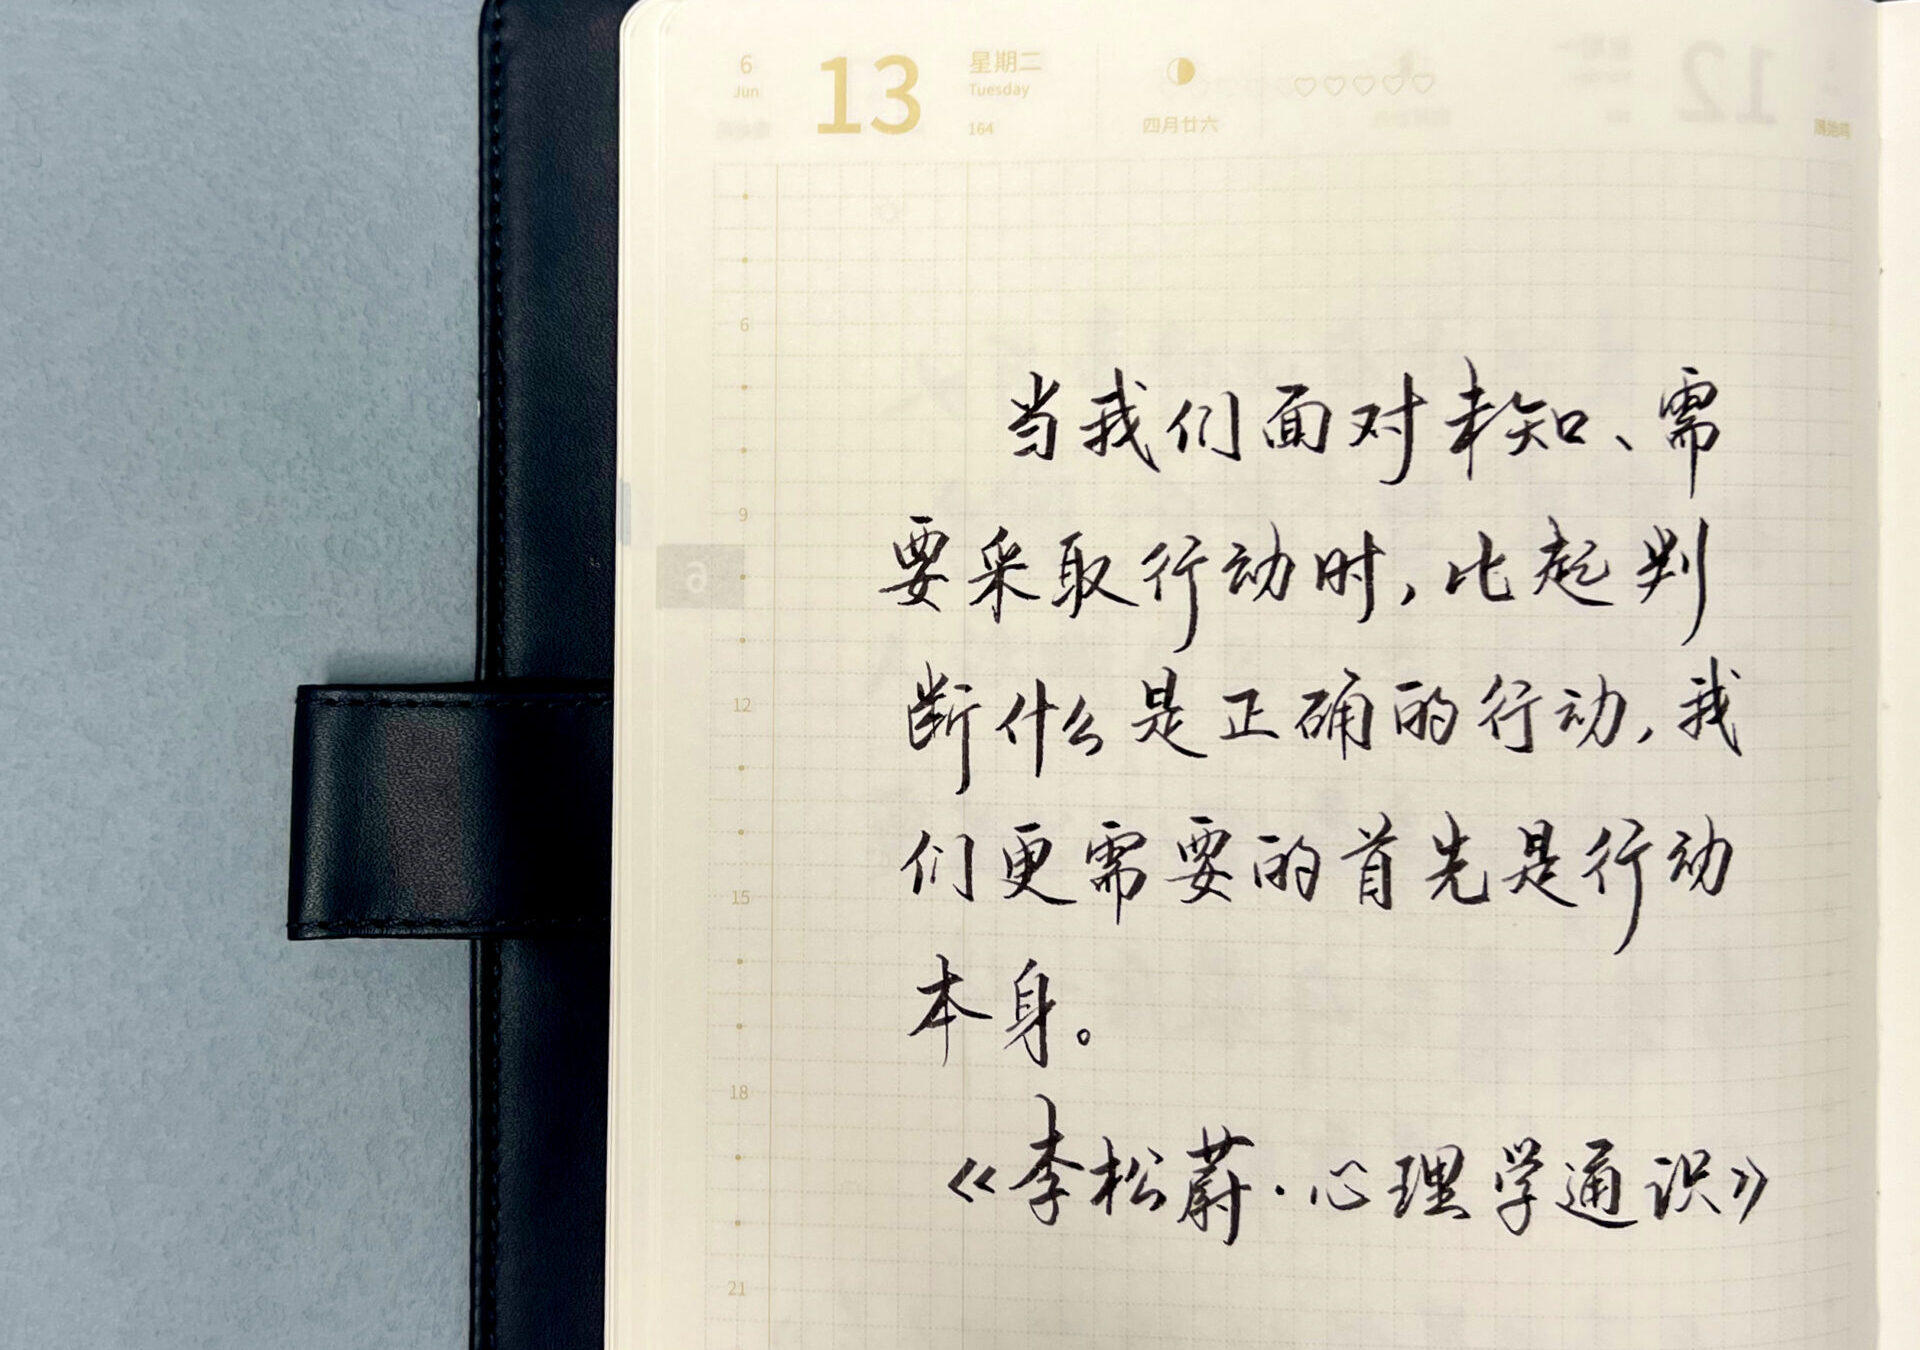 6 13 星期二
Jun Tuesday
164 四月廿六
12
6
当我们面对未知、需
9
要采取行动时,比起判
6
断什么是正确的行动,我
12
们更需要的首先是行动
15
本身。
18
《李松蔚·心理学通识》
21